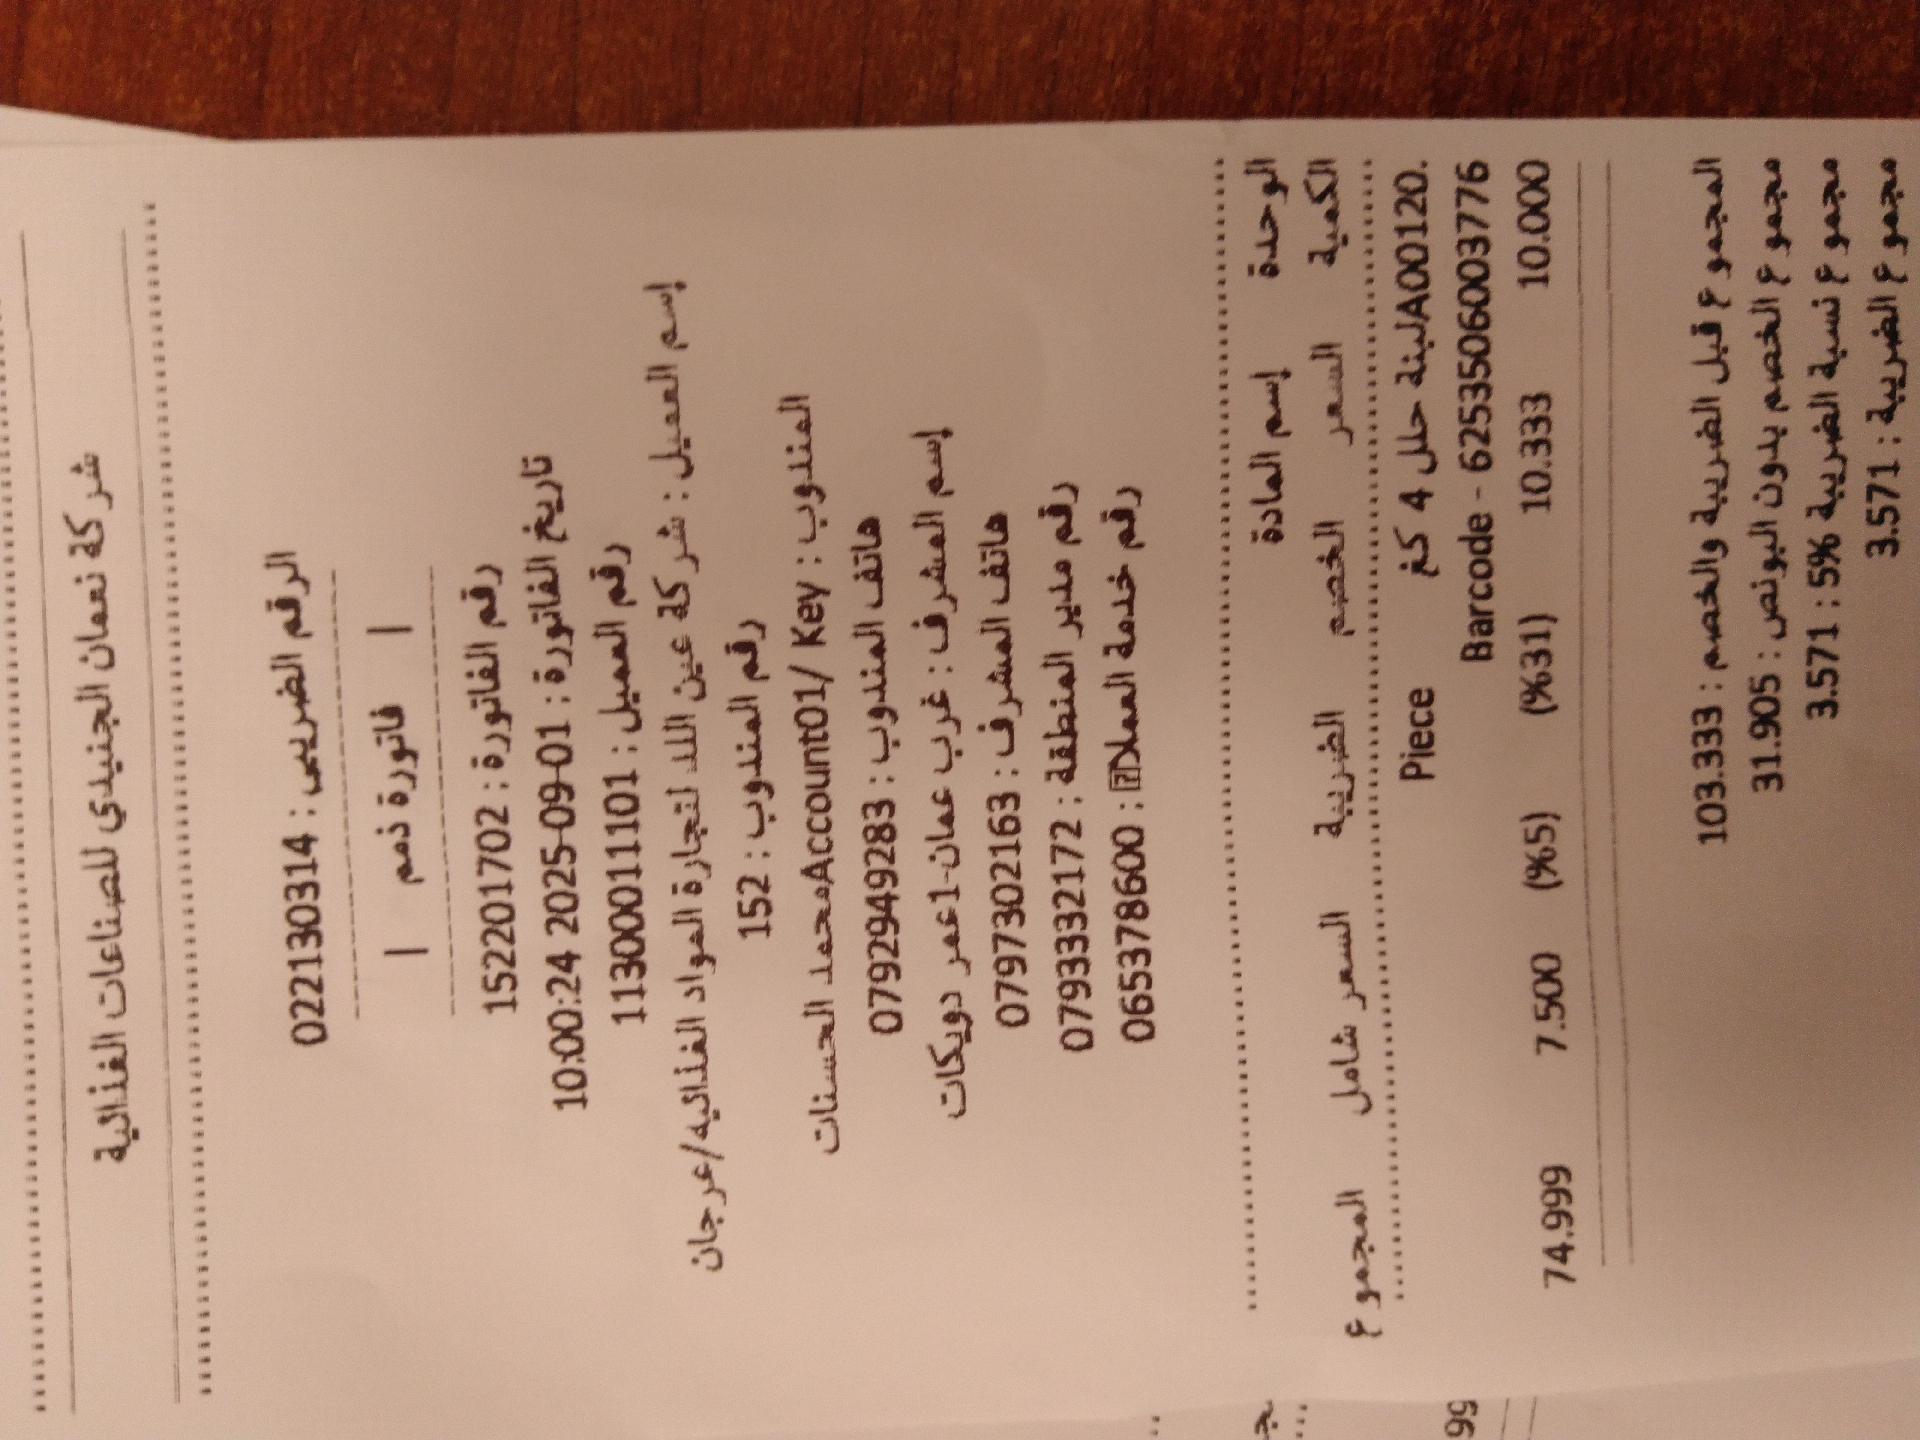 شركة نعمان الجنيدي للصناعات الغذائية
الرقم الضريبي : 022130314
| فاتورة ذمم |
رقم الفاتورة : 152201702
تاريخ الفاتورة : 01-09-2025 10:00:24
رقم العميل : 1130001101
إسم العميل : شركة عين اللد لتجارة المواد الغذائيه/عرجان
رقم المندوب : 152
المندوب : Account01/ Keyمحمد الحسنات
هاتف المندوب : 0792949283
إسم المشرف : غرب عمان-1عمر دويكات
هاتف المشرف : 0797302163
رقم مدير المنطقة : 0793332172
رقم خدمة العملا : 065378600
الوحدة إسم المادة
الكمية السعر الخصم الضريبة السعر شامل المجموع
.A00120لبنة حلل 4 كغ Piece
Barcode - 6253506003776
10.000 10.333 (%31) (%5) 7.500 74.999
المجموع قبل الضريبة والخصم : 103.333
مجموع الخصم بدون البونص : 31.905
مجموع نسبة الضريبة 5% : 3.571
مجموع الضريبة : 3.571
99